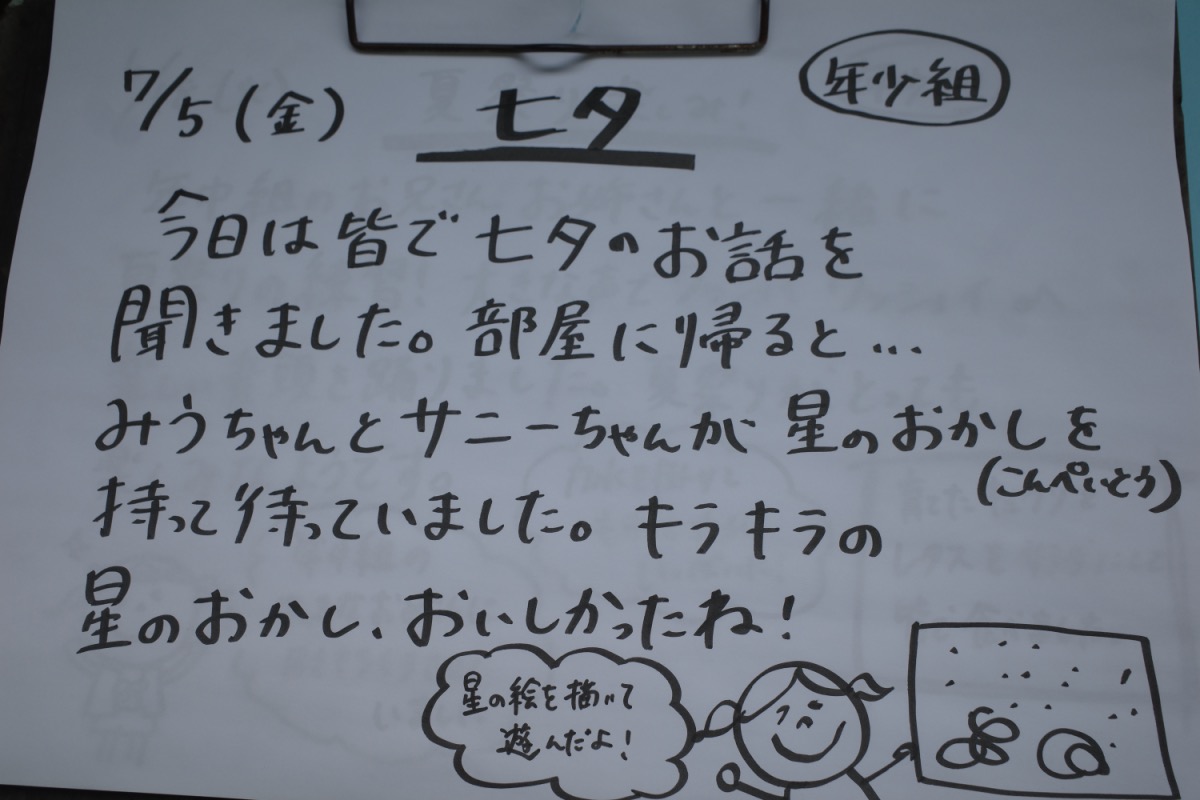 7/5(金) 七夕 年少組
今日は皆で七夕のお話を
聞きました。部屋に帰ると...
みうちゃんとサニーちゃんが星のおかしを
(こんぺいとう)
持って待っていました。キラキラの
星のおかし、おいしかったね!
星の絵を描いて
遊んだよ!